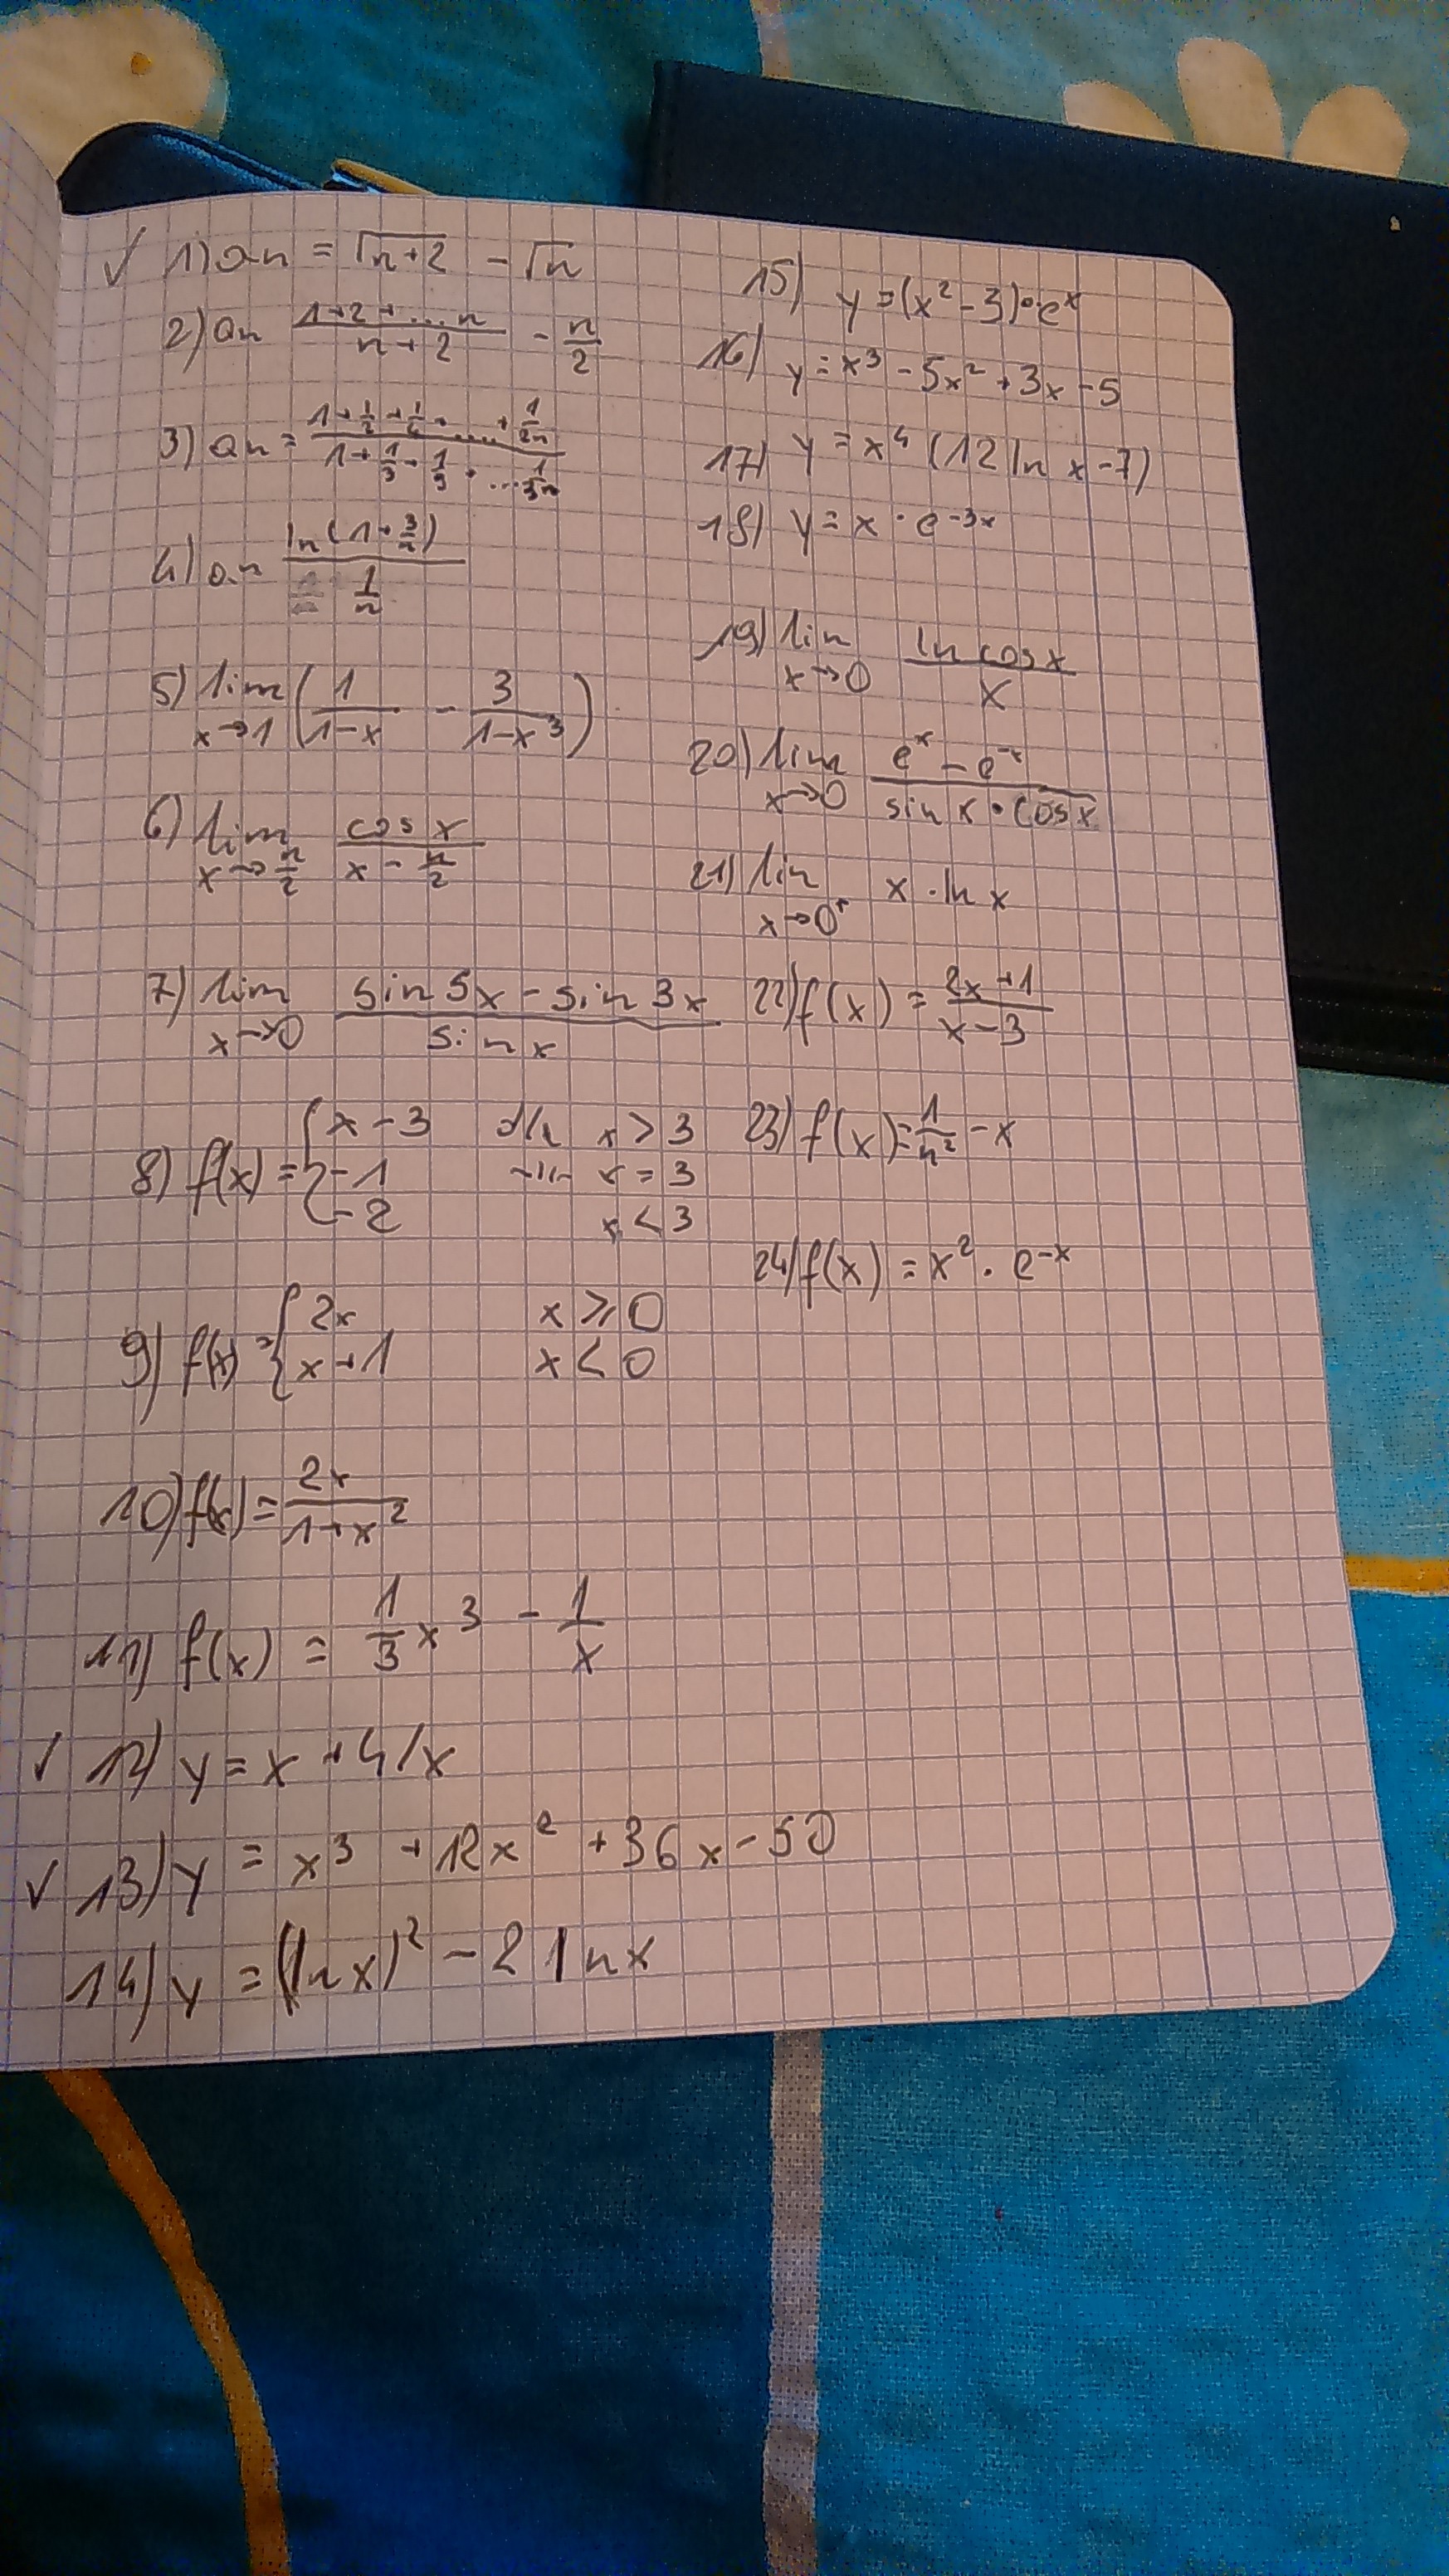 ✓ 1) an = √n+2 - √n
2) an (1+2+...n)/(n+2) - n/2
3) an = (1+1/2+1/4+....+1/2n)/(1+1/3+1/9+...1/3n)
4) an ln(1+3/n)/(1/n)
5) lim x→1 (1/(1-x) - 3/(1-x³))
6) lim x→π/2 cos x/(x - π/2)
7) lim x→0 (sin 5x - sin 3x)/sin x
8) f(x) = { x-3 dla x > 3
-1 -||- x = 3
-2 x < 3
9) f(x) = { 2x x ≥ 0
x+1 x < 0
10) f(x) = 2x/(1+x²)
11) f(x) = 1/3 x³ - 1/x
✓ 12) y = x + 4/x
✓ 13) y = x³ + 12x² + 36x - 50
14) y = (ln x)² - 2 ln x
15) y = (x² - 3)·eˣ
16) y = x³ - 5x² + 3x - 5
17) y = x⁴ (12 ln x - 7)
18) y = x · e⁻³ˣ
19) lim x→0 ln cos x/x
20) lim x→0 (eˣ - e⁻ˣ)/(sin x · cos x)
21) lim x→0⁺ x · ln x
22) f(x) = (2x+1)/(x-3)
23) f(x) = 1/x² - x
24) f(x) = x² · e⁻ˣ